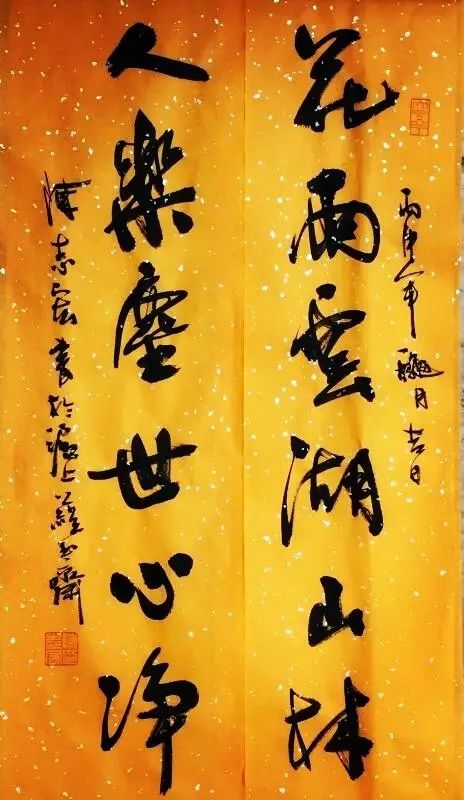 丙申年龝月吉日
花雨雲湖山林
人樂塵世心净
陳志宏書於滬上齋